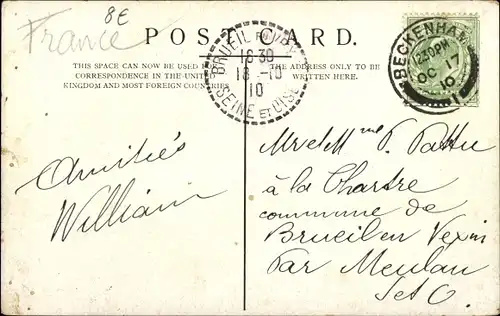 France
8E
POST CARD.
THIS SPACE CAN NOW BE USED FOR
CORRESPONDENCE IN THE UNITED
KINGDOM AND MOST FOREIGN COUNTRIES
THE ADDRESS ONLY TO BE
WRITTEN HERE.
BRUEIL EN VEXIN
16 30
18 - 10
10
SEINE ET OISE
BECKENHAM
12.30PM
OC 17
10
Amitiés
William
Mr et Mme P. Pattu
à la Chartre
commune de
Brueil en Vexin
Par Meulan
S et O.